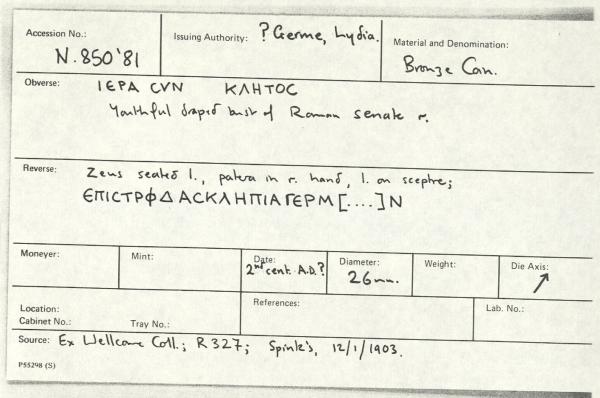 Accession No.: Issuing Authority: ? Germe, Lydia. Material and Denomination:
N.850'81 Bronze Coin.
Obverse: ΙΕΡΑ CVN ΚΛΗΤΟC
Youthful draped bust of Roman senate r.
Reverse: Zeus seated l., patera in r. hand, l. on sceptre;
ЄΠΙCΤΡΦΔ ΑCΚΛΗΠΙΑΓЄΡΜ[....]Ν
Moneyer: Mint: Date: 2nd cent. A.D.? Diameter: 26mm. Weight: Die Axis: ↗
Location: References: Lab. No.:
Cabinet No.: Tray No.:
Source: Ex Wellcome Coll.; R327; Spink's, 12/1/1903.
P55298 (S)